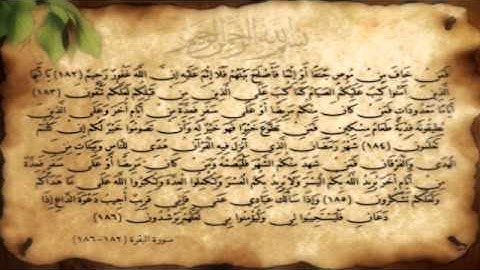 بسم الله الرحمن الرحيم
فَمَنْ خَافَ مِنْ مُوصٍ جَنَفًا أَوْ إِثْمًا فَأَصْلَحَ بَيْنَهُمْ فَلَا إِثْمَ عَلَيْهِ إِنَّ اللَّهَ غَفُورٌ رَحِيمٌ (١٨٢) يَا أَيُّهَا
الَّذِينَ آمَنُوا كُتِبَ عَلَيْكُمُ الصِّيَامُ كَمَا كُتِبَ عَلَى الَّذِينَ مِنْ قَبْلِكُمْ لَعَلَّكُمْ تَتَّقُونَ (١٨٣)
أَيَّامًا مَعْدُودَاتٍ فَمَنْ كَانَ مِنْكُمْ مَرِيضًا أَوْ عَلَى سَفَرٍ فَعِدَّةٌ مِنْ أَيَّامٍ أُخَرَ وَعَلَى الَّذِينَ
يُطِيقُونَهُ فِدْيَةٌ طَعَامُ مِسْكِينٍ فَمَنْ تَطَوَّعَ خَيْرًا فَهُوَ خَيْرٌ لَهُ وَأَنْ تَصُومُوا خَيْرٌ لَكُمْ إِنْ كُنْتُمْ
تَعْلَمُونَ (١٨٤) شَهْرُ رَمَضَانَ الَّذِي أُنْزِلَ فِيهِ الْقُرْآنُ هُدًى لِلنَّاسِ وَبَيِّنَاتٍ مِنَ
الْهُدَى وَالْفُرْقَانِ فَمَنْ شَهِدَ مِنْكُمُ الشَّهْرَ فَلْيَصُمْهُ وَمَنْ كَانَ مَرِيضًا أَوْ عَلَى سَفَرٍ فَعِدَّةٌ
مِنْ أَيَّامٍ أُخَرَ يُرِيدُ اللَّهُ بِكُمُ الْيُسْرَ وَلَا يُرِيدُ بِكُمُ الْعُسْرَ وَلِتُكْمِلُوا الْعِدَّةَ وَلِتُكَبِّرُوا اللَّهَ عَلَى مَا هَدَاكُمْ
وَلَعَلَّكُمْ تَشْكُرُونَ (١٨٥) وَإِذَا سَأَلَكَ عِبَادِي عَنِّي فَإِنِّي قَرِيبٌ أُجِيبُ دَعْوَةَ الدَّاعِ إِذَا
دَعَانِ فَلْيَسْتَجِيبُوا لِي وَلْيُؤْمِنُوا بِي لَعَلَّهُمْ يَرْشُدُونَ (١٨٦)
سورة البقرة (١٨٢-١٨٦)